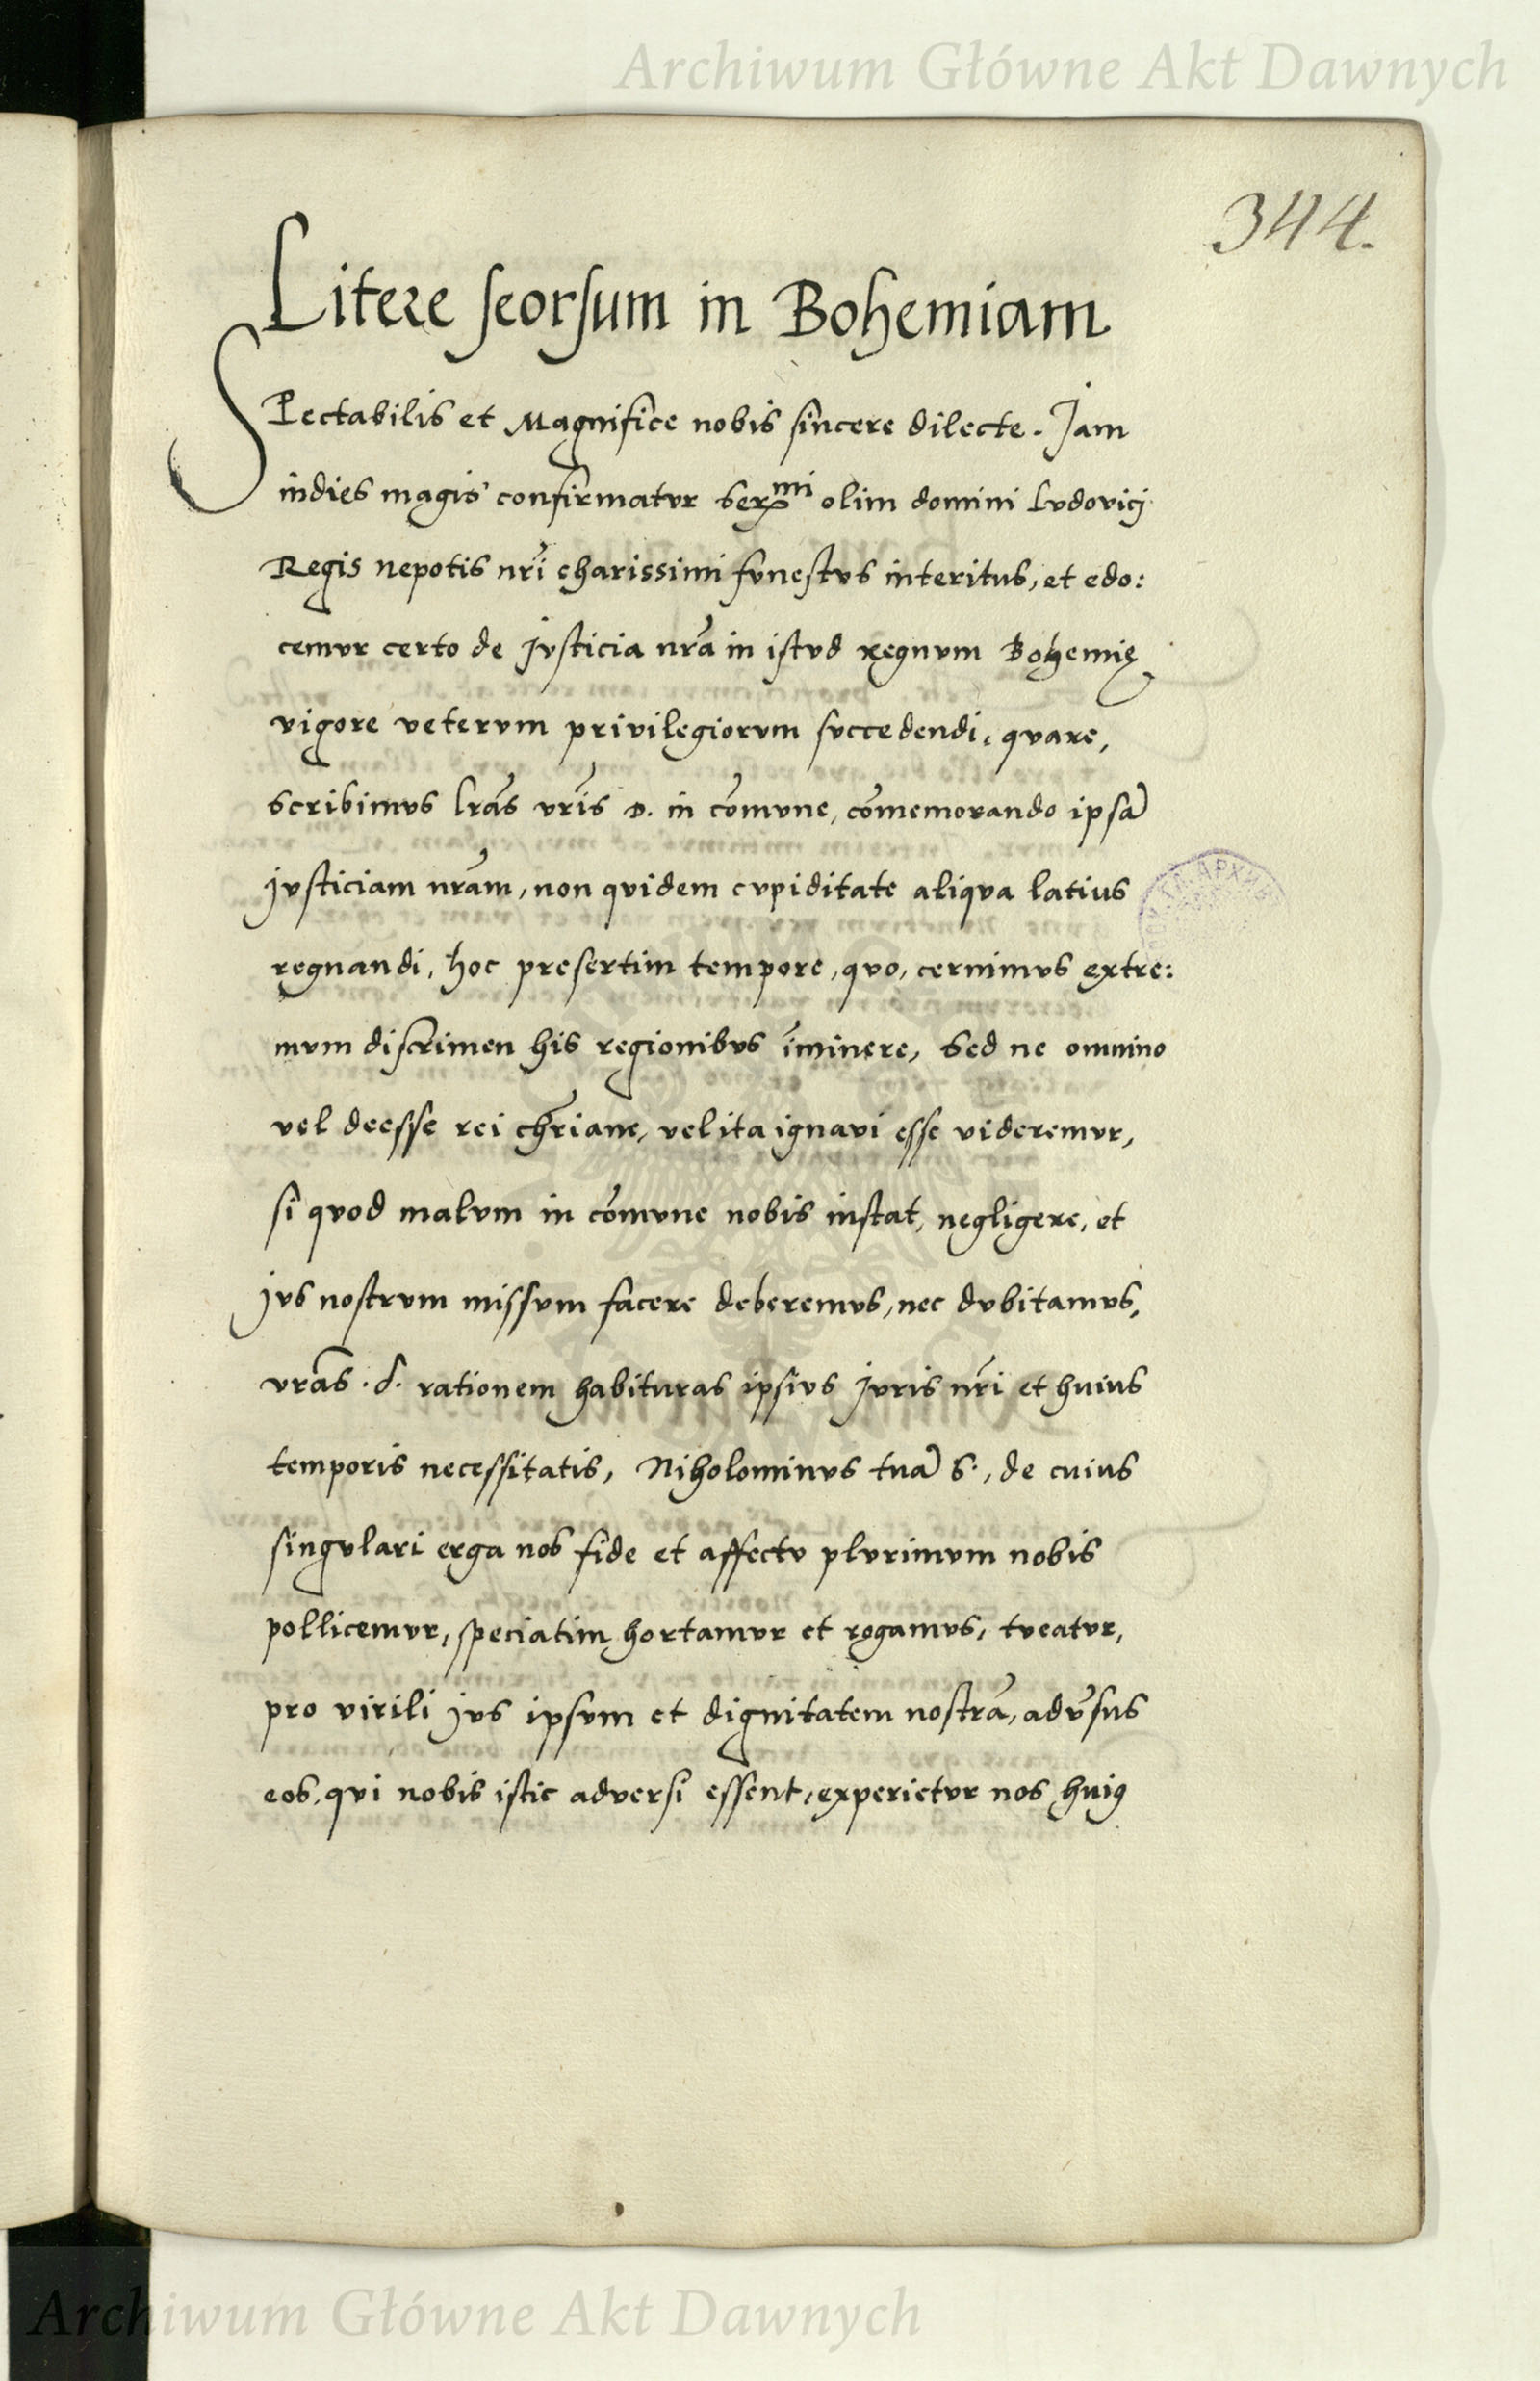 Archiwum Główne Akt Dawnych
344.
Litere seorsum in Bohemiam
SPectabilis et Magnifice nobis sincere dilecte. Jam
indies magis confirmatvr Serᵐⁱ olim domini Lvdovicj
Regis nepotis nr̃i charissimi fvnestvs interitus, et edo:
cemvr certo de jvsticia nr̃a in istvd regnvm Bohemię
vigore vetervm privilegiorvm svccedendi, qvare,
scribimvs lr̃as vr̃is D. in cõmvne, cõmemorando ipsã
jvsticiam nr̃am, non qvidem cvpiditate aliqva latius
regnandi, hoc presertim tempore, qvo, cernimvs extre:
mvm discrimen his regionibvs ĩminere, Sed ne omnino
vel deesse rei chr̃iane, vel ita ignavi esse videremvr,
si qvod malvm in cõmvne nobis instat, negligere, et
jvs nostrvm missvm facere deberemvs, nec dvbitamvs,
vr̃as .d. rationem habituras ipsivs jvris nr̃i et huius
temporis necessitatis, Niholominvs tuã S., de cuius
singvlari erga nos fide et affectv plvrimvm nobis
pollicemvr, speciatim hortamvr et rogamvs, tveatvr,
pro virili jvs ipsvm et dignitatem nostrã, adṽsus
eos, qvi nobis istic adversi essent, experietvr nos huiꝰ
Archiwum Główne Akt Dawnych